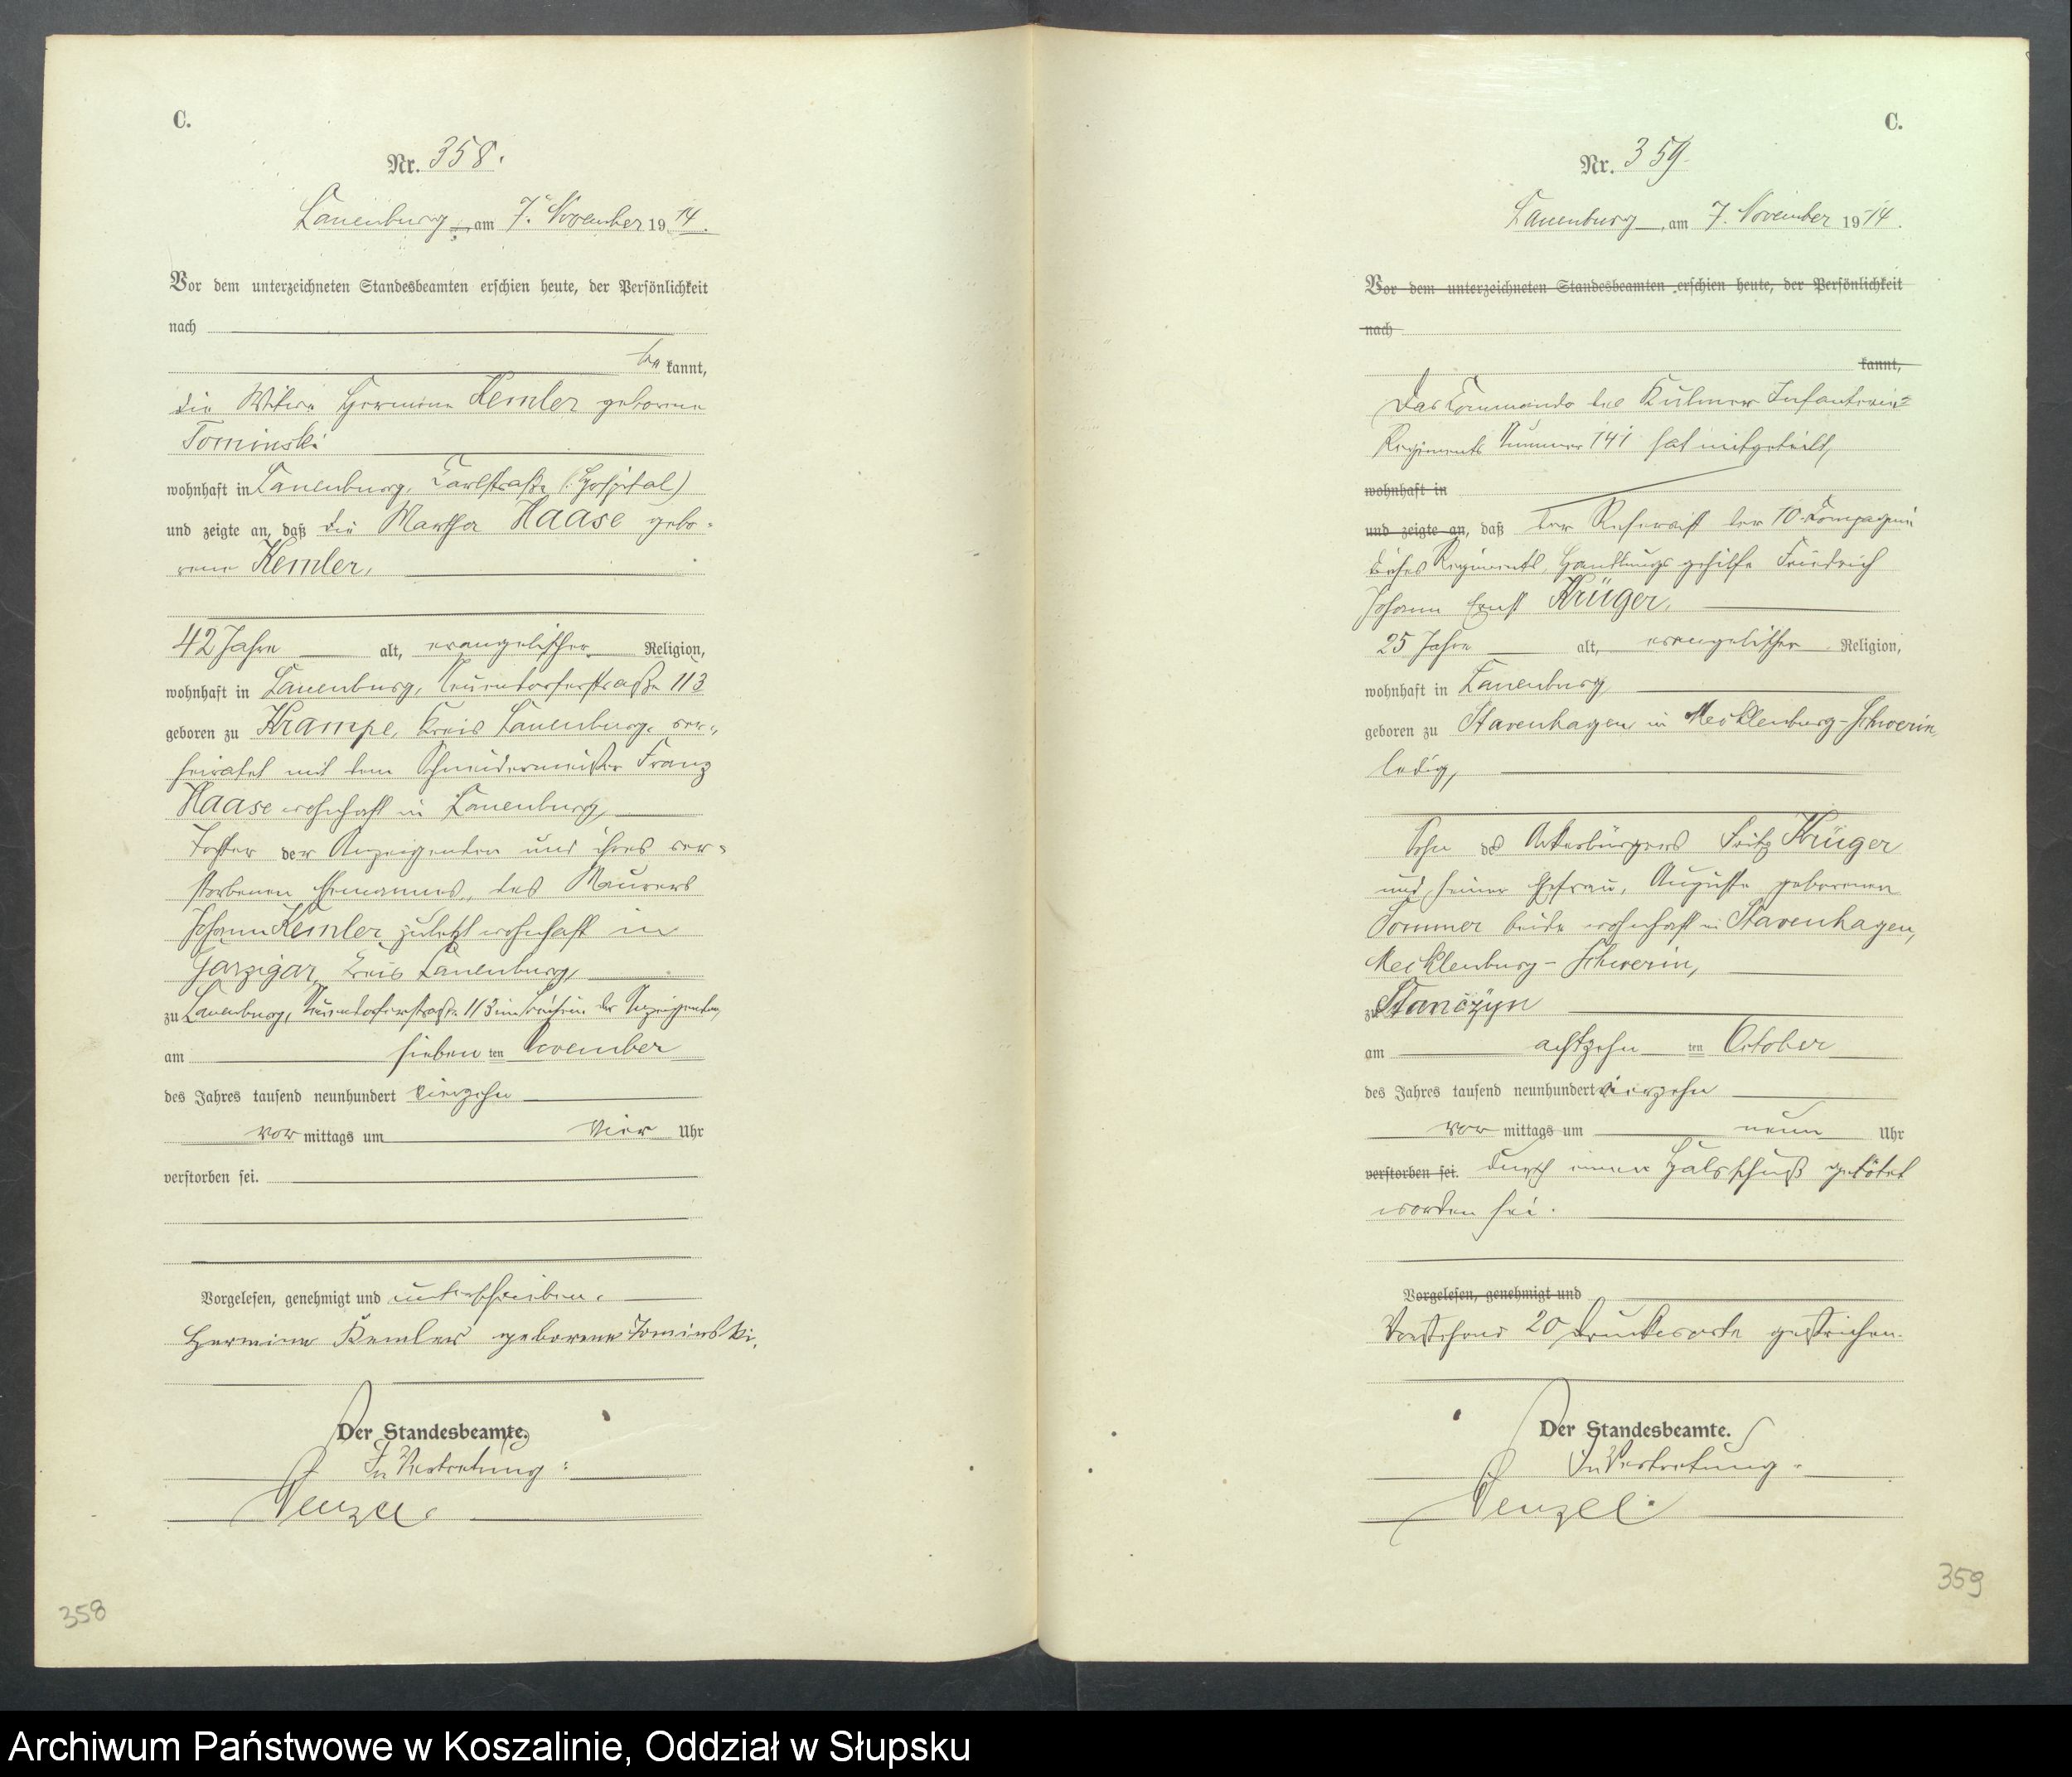 C.
Nr. 358.
Lauenburg, am 7. November 1914.
Vor dem unterzeichneten Standesbeamten erschien heute, der Persönlichkeit
nach
be kannt,
die Witwe Hermine Kemler geborene
Tominski
wohnhaft in Lauenburg, Karlstraße (Hospital)
und zeigte an, daß die Martha Haase gebo-
rene Kemler,
42 Jahre alt, evangelischer Religion,
wohnhaft in Lauenburg, Neuendorferstraße 113
geboren zu Krampe, Kreis Lauenburg, ver-
heiratet mit dem Schneidermeister Franz
Haase wohnhaft in Lauenburg,
Tochter der Anzeigenden und ihres ver-
storbenen Ehemannes, des Maurers
Johann Kemler zuletzt wohnhaft in
Garzigar, Kreis Lauenburg,
zu Lauenburg, Neuendorferstraße 113 im Beisein der Anzeigenden,
am sieben ten November
des Jahres tausend neunhundert vierzehn
vor mittags um vier Uhr
verstorben sei.
Vorgelesen, genehmigt und unterschrieben.
Hermine Kemler geborene Tominski.
Der Standesbeamte.
In Vertretung:
Wenzel.
358
C.
Nr. 359.
Lauenburg, am 7. November 1914.
Vor dem unterzeichneten Standesbeamten erschien heute, der Persönlichkeit
nach
kannt,
Das Kommando des Kulmer Infanterie-
Regiments Nummer 141 hat mitgeteilt,
wohnhaft in
und zeigte an, daß der Reservist der 10. Kompagnie
dieses Regiments, Handlungsgehilfe Friedrich
Johann Ernst Krüger,
25 Jahre alt, evangelischer Religion,
wohnhaft in Lauenburg
geboren zu Stavenhagen in Mecklenburg-Schwerin,
ledig,
Sohn des Ackerbürgers Fritz Krüger
und seiner Ehefrau, Auguste geborenen
Sommer beide wohnhaft in Stavenhagen,
Mecklenburg-Schwerin,
zu Stanczyn
am achtzehn ten October
des Jahres tausend neunhundert vierzehn
vor mittags um neun Uhr
verstorben sei. durch einen Halsschuß getötet
worden sei.
Vorgelesen, genehmigt und
Vorstehend 20 Druckworte gestrichen.
Der Standesbeamte.
In Vertretung.
Wenzel.
359
Archiwum Państwowe w Koszalinie, Oddział w Słupsku